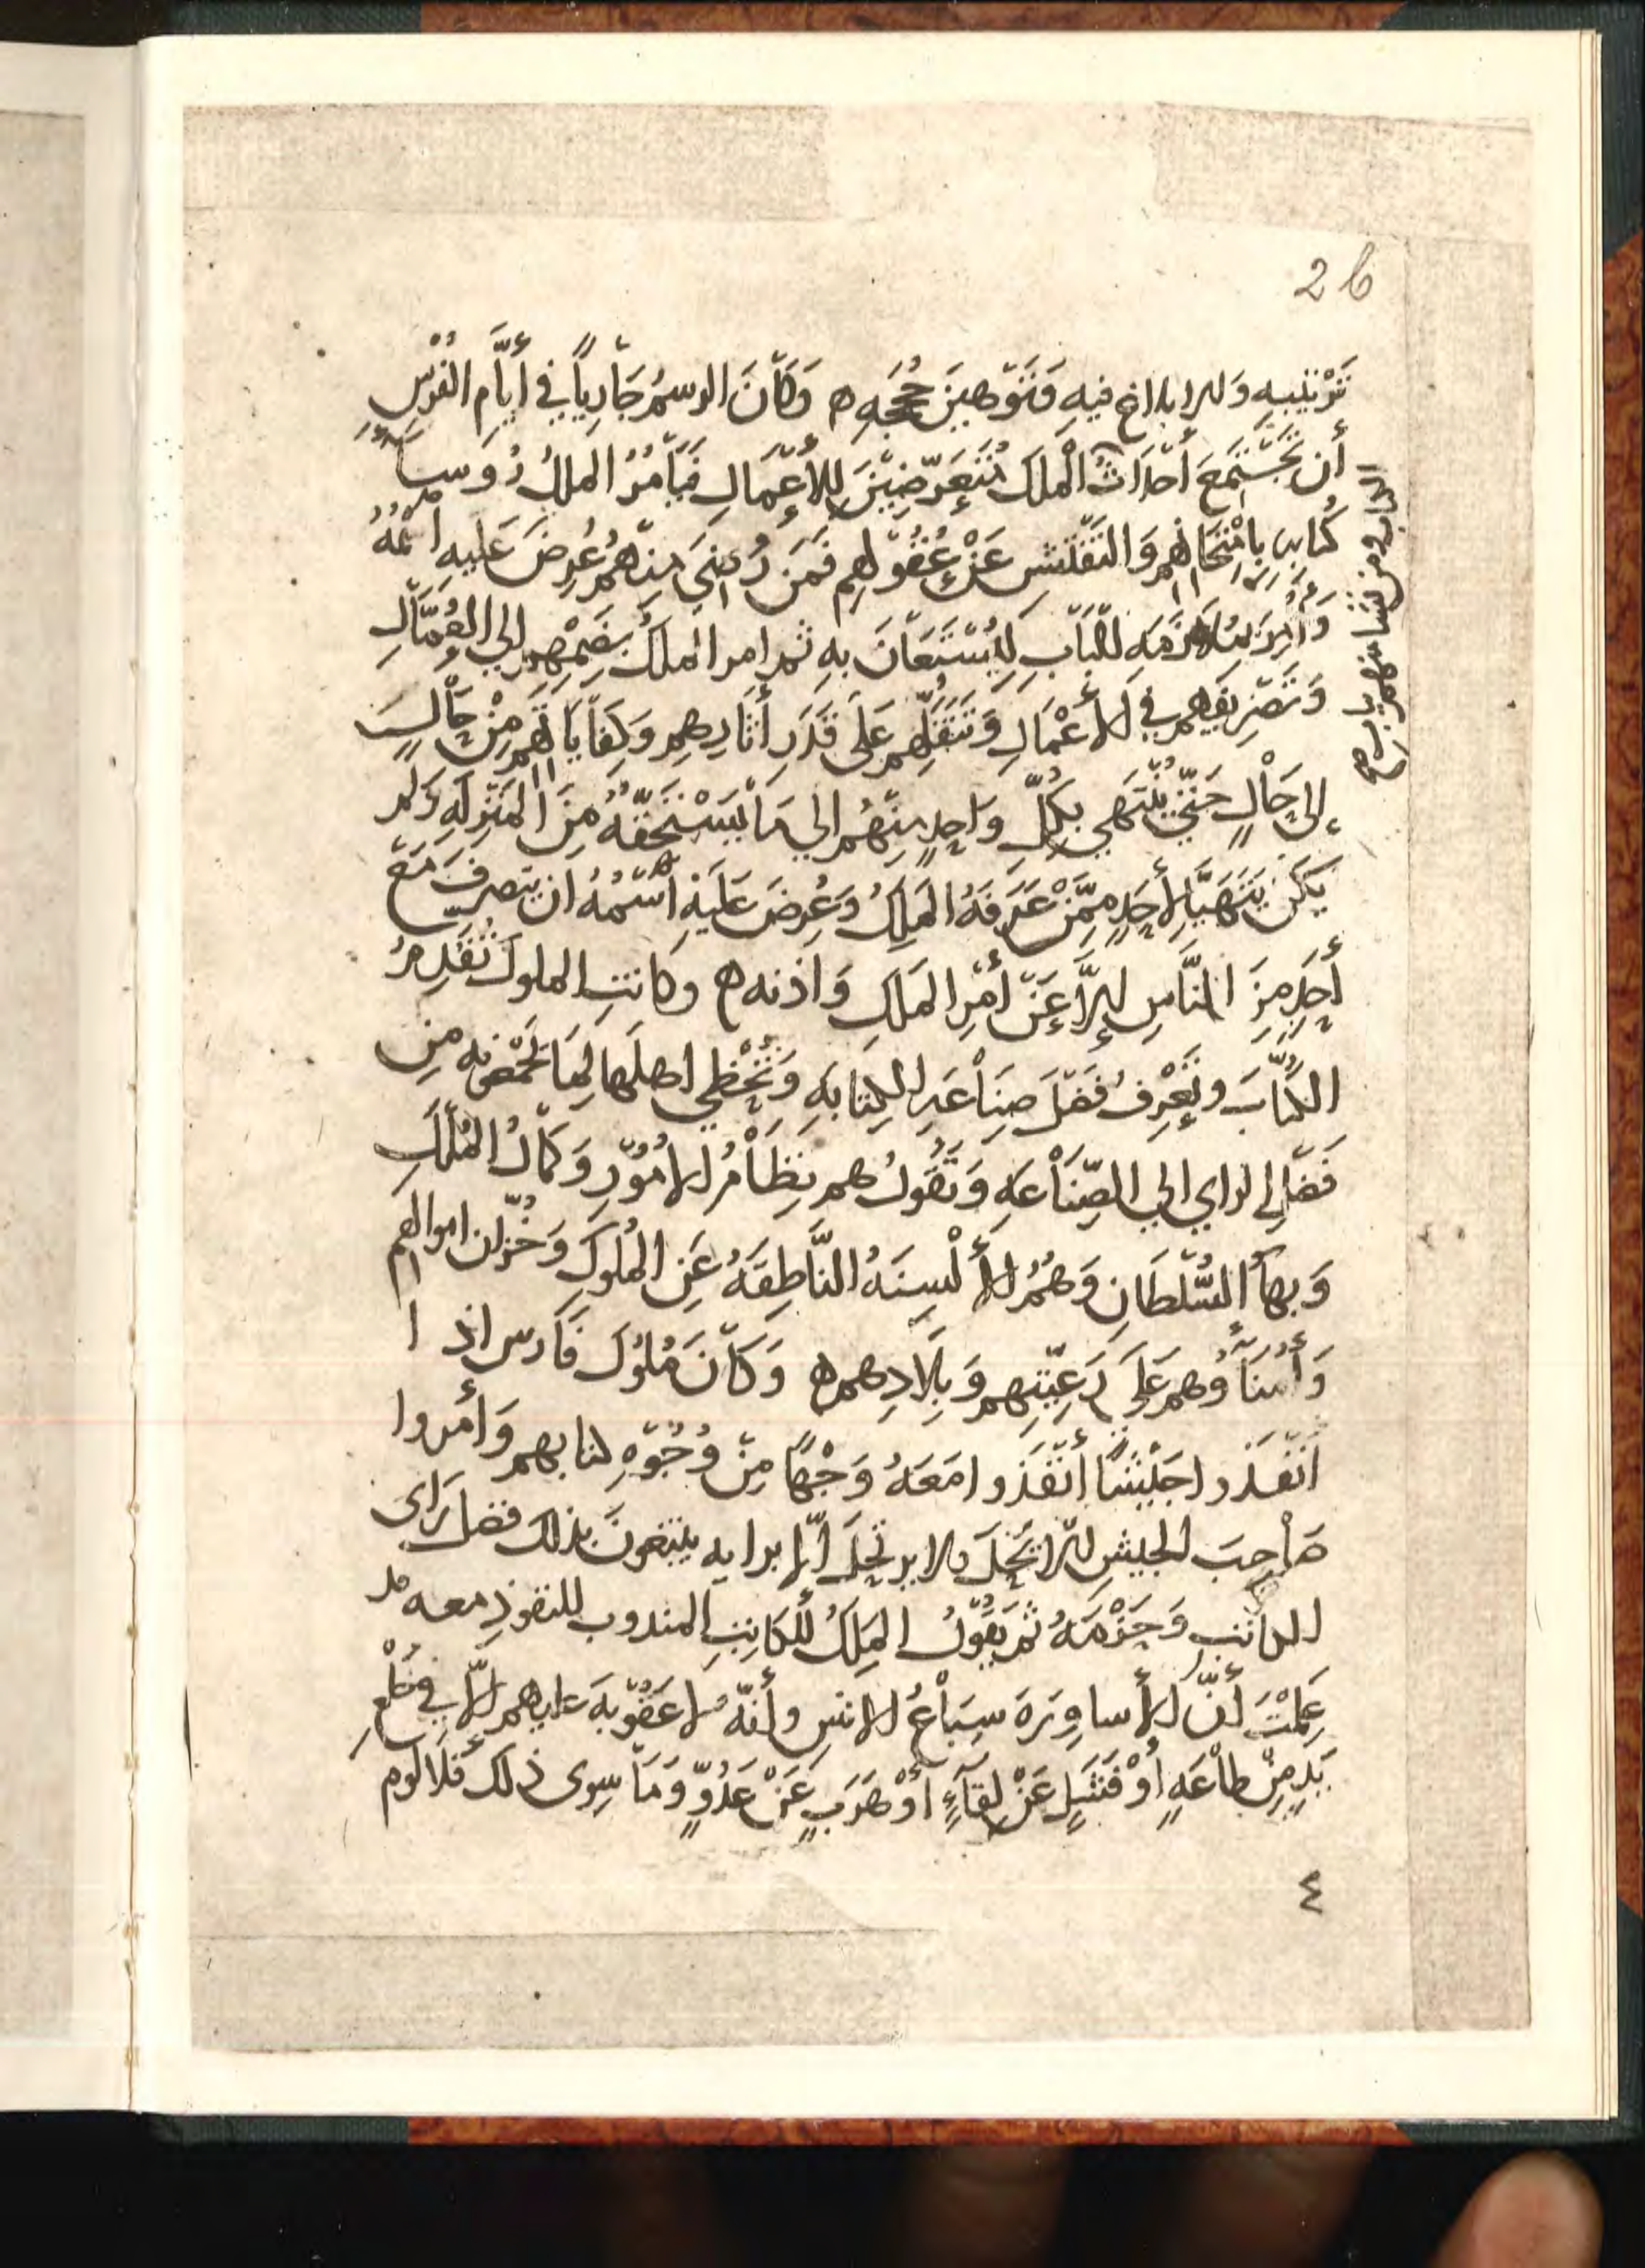 26
تَرْتِيبِهِ وَالإبلاغ فيهِ وَتَوهِينَ حُجَجِهِ ه وَكَانَ الرسمُ جَارِياً في أيَّامِ الفُرْسِ
أن تَجْتَمِعَ أحْدَاثُ الْمَلِكَ مُتَعَرِّضِينَ لِلأعْمَالِ فَيَأمُرُ المَلِكُ رُوسا
كُتابِهِ بِامْتِحَانِهم وَالتَفْتِيشِ عَنْ عُقُولِهِم فَمَن رُضِيَ مِنْهُمْ عُرِضَ عَلَيهِ اسْمُهُ
وَأُمِرَ بِمُلازَمَهِ للبَابِ لِيُسْتَعَانَ بِهِ ثم امر المَلكُ بِضَمِّهِم إلى العُمَّالِ
وَتَصْرِيفِهم في الأعْمَالِ وَتَنَقُّلِهم عَلى قَدَرِ أثَارِهِم وَكِفَايَاتِهم مِنْ حَالٍ
إلى حَالٍ حَتّي يُنْتَهي بِكُلِّ وَاحِدٍ مِنْهُم الي مَا يَسْتَحِقّهُ مِنَ الْمَنْزِلَهِ وَلم
يَكُن يَتَهَيَّا لأحَدٍ مِمَّنْ عَرَفَهُ المَلِكُ وَعُرِضَ عَلَيْهِ اسْمُهُ ان يتصرفَ مَعَ
أحَدٍ مِنَ النَّاسِ إلاَّ عَنْ أمْرِ المَلكِ وَاذنه ه وكانتِ الملوكُ تُقَدِّمُ
الكُتَّابَ وتَعْرِفُ فَضلَ صِنَاعَهِ الكِتَابَهِ وَتُحْظِي اهلَها لِمَا تَجمعُه مِن
فَضْلِ الراي الي الصِّنَاعَهِ وَتَقُولُ هم نِظَامُ الأمُورِ وَكَمَالُ المُلكِ
وَبهاُ السُّلطَانِ وَهُمُ الألْسِنَهُ النَّاطِقَهُ عَنِ المُلوكِ وَخُزّان اموالهم
وَأُمَنَاؤُهم عَلَى رَعِيّتِهِم وَبِلَادِهم ه وَكَانَ مُلوُكُ فَارس اذا
انْفَذوا جَيْشًا أنْفَذوا مَعَهُ وَجْهًا مِنْ وُجُوهِ كتابهم وَأمروا
صَاحِبَ الجيشِ ألاّ يَحُلَ ولا يرتحِلَ إلّا برايه يبتغونَ بذلك فضل رَايِ
الكاتب وَحَزْمَهُ ثم يَقُولُ المَلِكُ للْكَاتِبِ المندوب للنفوذِ معه قد
عَلِمْتَ أنّ الأساوِرَةَ سِبَاعُ الانسِ وأنّهُ لا عقُوبَةَ عليهم إلّا في خَلْعِ
يَدٍ مِنْ طاعَهٍ أوْ فَشَلٍ عَنْ لِقَآءٍ أوْ هَرَبٍ عَنْ عَدُوٍّ وَمَا سِوى ذلك فَلَا لوم
٤
الباب ومن نشا منهم بباب
صح